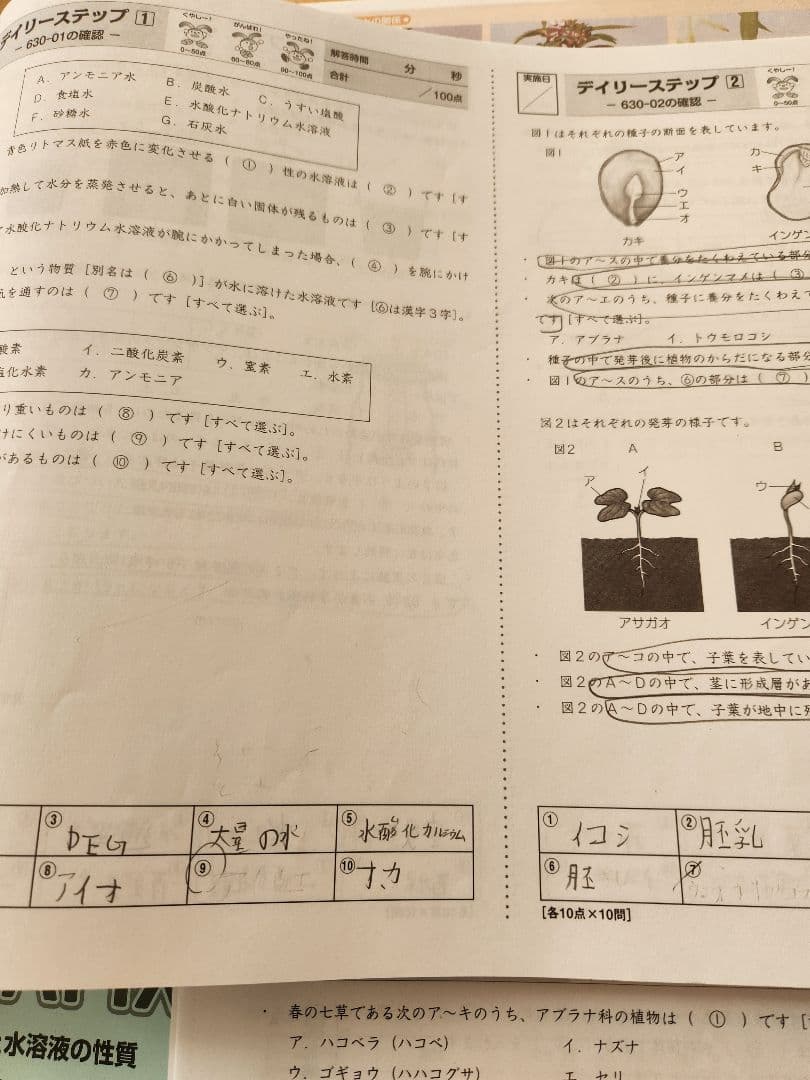 デイリーステップ 1
− 630-01の確認 −
くやしー!
0〜50点
がんばれ!
60〜80点
やったね!
90〜100点
解答時間 分 秒
合計 /100点
A. アンモニア水 B. 炭酸水 C. うすい塩酸
D. 食塩水 E. 水酸化ナトリウム水溶液
F. 砂糖水 G. 石灰水
青色リトマス紙を赤色に変化させる( ① )性の水溶液は( ② )です[す
加熱して水分を蒸発させると、あとに白い固体が残るものは( ③ )です[す
水酸化ナトリウム水溶液が腕にかかってしまった場合、( ④ )を腕にかけ
という物質[別名は( ⑥ )]が水に溶けた水溶液です[⑥は漢字3字]。
を通すのは( ⑦ )です[すべて選ぶ]。
酸素 イ. 二酸化炭素 ウ. 窒素 エ. 水素
塩化水素 カ. アンモニア
り重いものは( ⑧ )です[すべて選ぶ]。
けにくいものは( ⑨ )です[すべて選ぶ]。
があるものは( ⑩ )です[すべて選ぶ]。
③ DEG
④ 大量の水
⑤ 水酸化カルシウム
⑧ アイオ
⑨
⑩ オ,カ
実施日
デイリーステップ 2
− 630-02の確認 −
くやしー!
0〜50点
図1はそれぞれの種子の断面を表しています。
図1
ア
イ
ウ
エ
オ
カキ
カ
キ
インゲン
・ 図1のア〜スの中で養分をたくわえている部分
・ カキは( ② )に、インゲンマメは( ③
・ 次のア〜エのうち、種子に養分をたくわえ
です[すべて選ぶ]。
ア. アブラナ イ. トウモロコシ
・ 種子の中で発芽後に植物のからだになる部分
・ 図1のア〜スのうち、⑥の部分は( ⑦ )
図2はそれぞれの発芽の様子です。
図2 A B
ア
イ
ウ
アサガオ
インゲン
・ 図2のア〜コの中で、子葉を表してい
・ 図2のA〜Dの中で、茎に形成層があ
・ 図2のA〜Dの中で、子葉が地中に残
① イコシ
② 胚乳
⑥ 胚
⑦
[各10点×10問]
水溶液の性質
・ 春の七草である次のア〜キのうち、アブラナ科の植物は( ① )です[
ア. ハコベラ(ハコベ) イ. ナズナ
ウ. ゴギョウ(ハハコグサ) エ. セリ